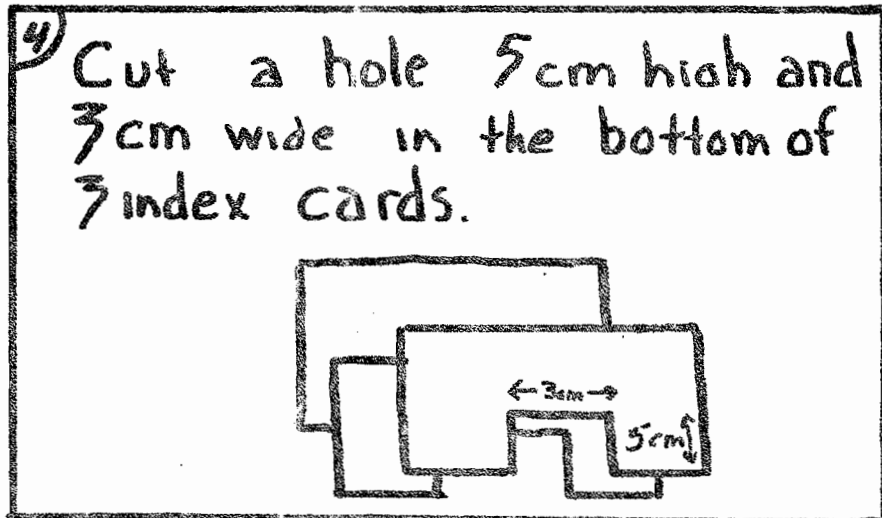 4)
Cut a hole 5cm high and
3cm wide in the bottom of
3 index cards.
← 3cm →
5cm